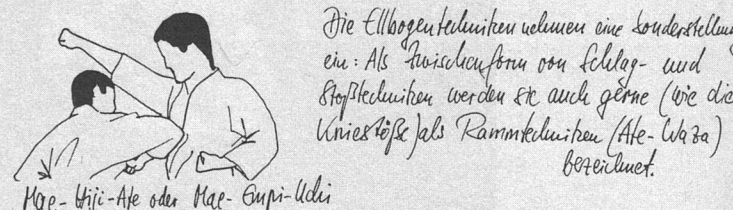 Die Ellbogentechniken nehmen eine Sonderstellung
ein: Als Zwischenform von Schlag- und
Stoßtechniken werden sie auch gerne (wie die
Kniestöße) als Rammtechniken (Ate-Waza)
bezeichnet.
Mae-Hiji-Ate oder Mae-Empi-Uchi